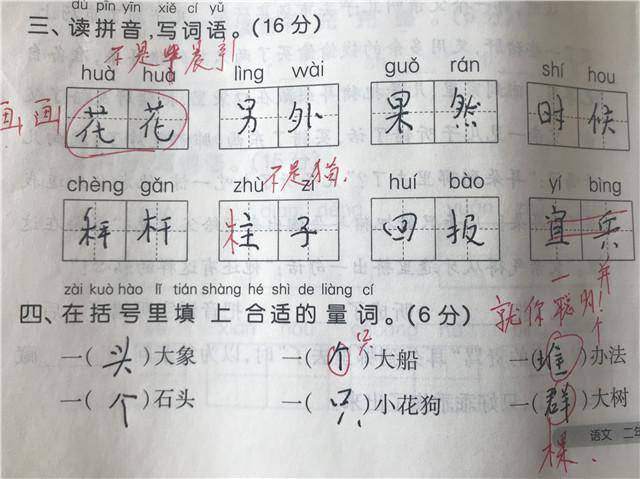 dú pīn yīn xiě cí yǔ
三、读拼音,写词语。(16分)
不是毕晨引
huà huà lìng wài guǒ rán shí hou
画画 花花 另外 果然 时候
不是猫.
chèng gǎn zhù zi huí bào yí bìng
秤杆 柱子 回报 宜兵
一并
zài kuò hào lǐ tián shàng hé shì de liàng cí
四、在括号里填上合适的量词。(6分)
就你聪明!
只 个
一(头)大象 一(个)大船 一(堆)办法
一(个)石头 一(只)小花狗 一(群)大树
棵.
语文 二年